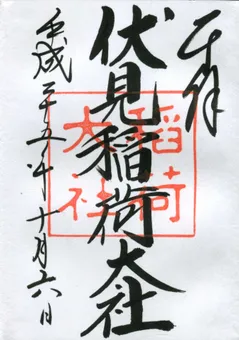 奉拝
伏見稲荷大社
平成二十五年十月六日
稲荷
大社